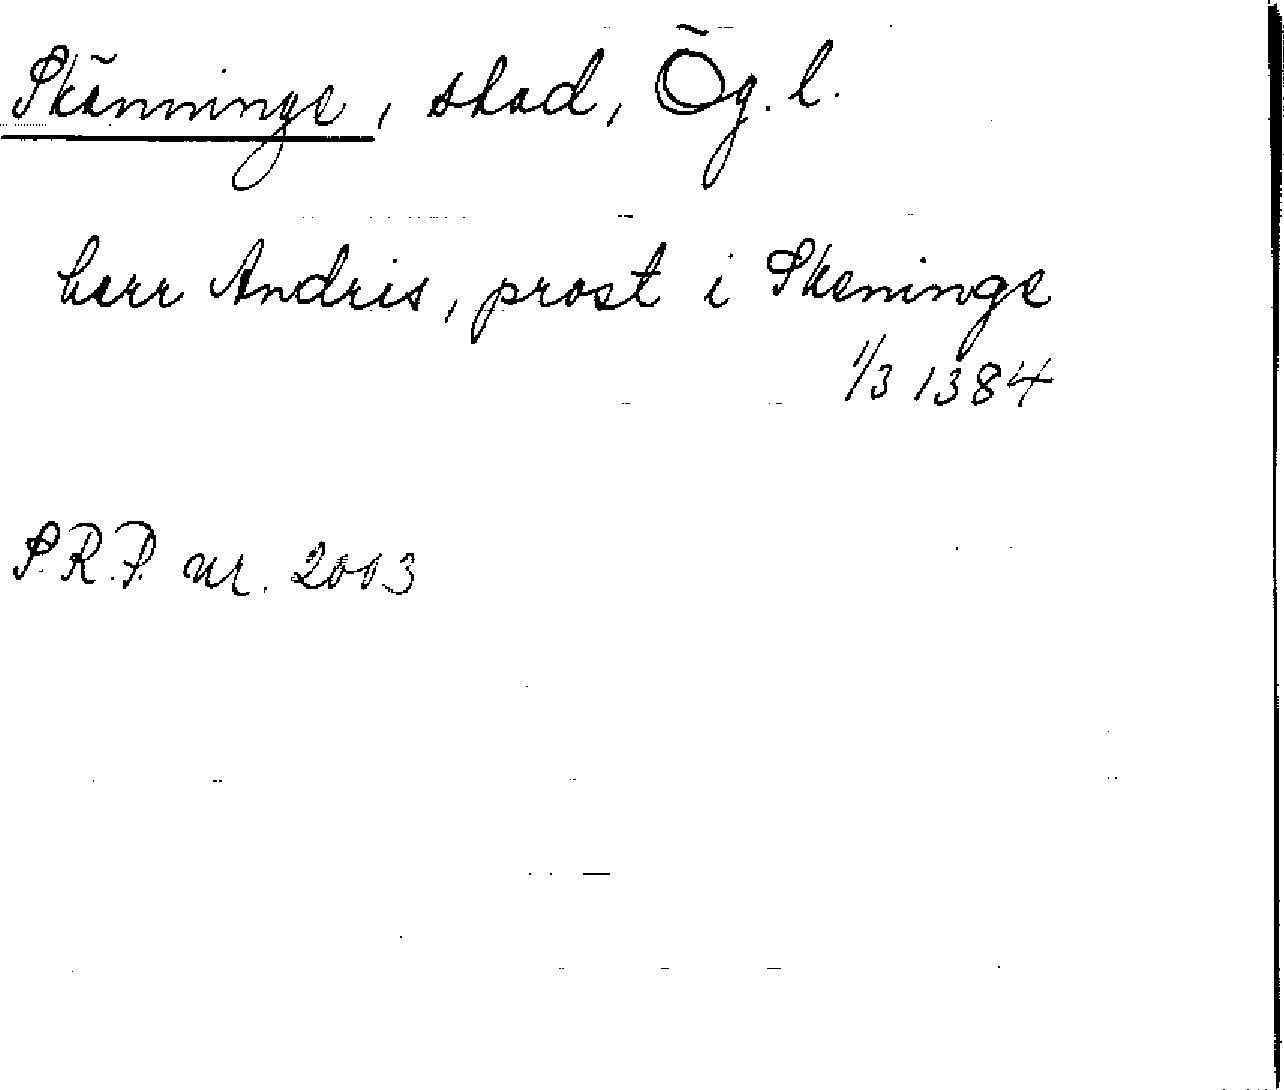 Skänninge, stad, Ög. l.
herr Andris, prost i Skeninge
1/3 1384
S.R.P. nr. 2003